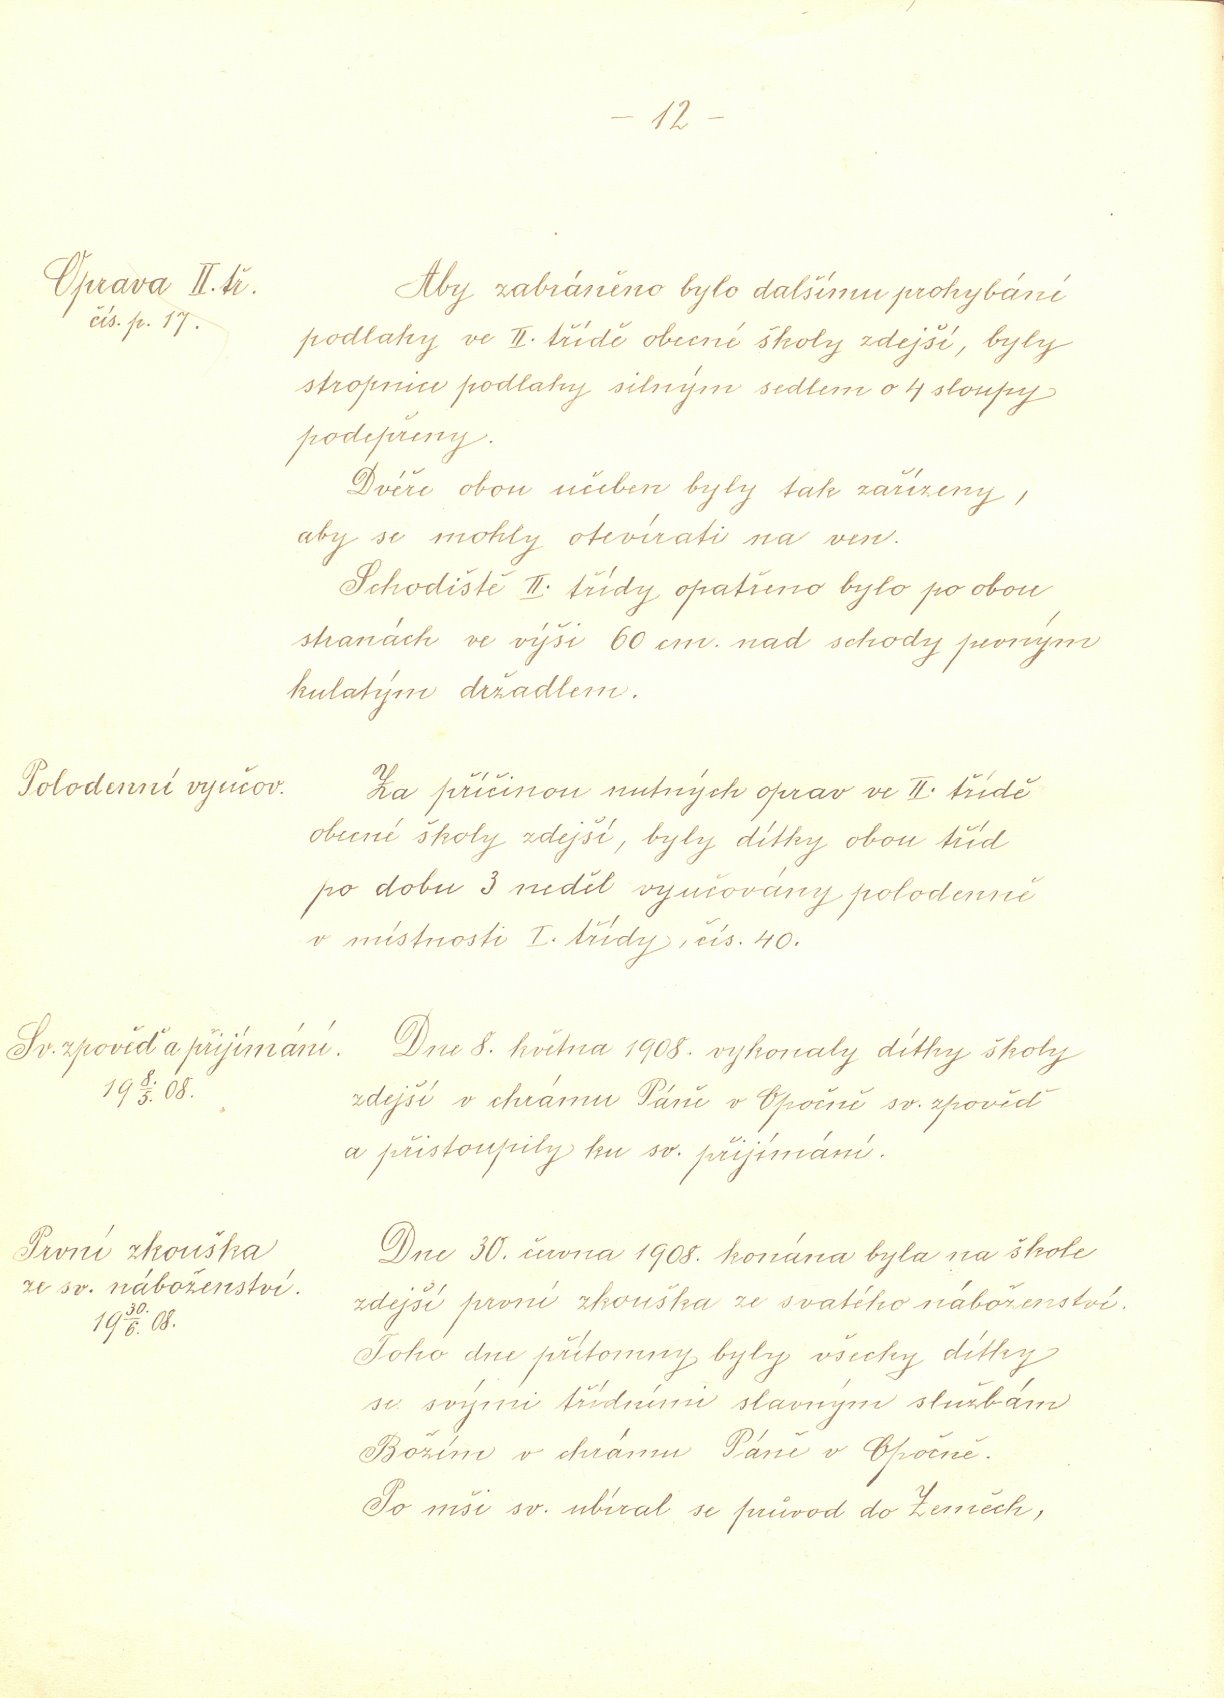 – 12 –
Oprava II. tř.
čís. p. 17.
Aby zabráněno bylo dalšímu prohybání
podlahy ve II. třídě obecné školy zdejší, byly
stropnice podlahy silným sedlem o 4 sloupy
podepřeny.
Dvéře obou učeben byly tak zařízeny,
aby se mohly otevírati na ven.
Schodiště II. třídy opatřeno bylo po obou
stranách ve výši 60 cm. nad schody pevným
kulatým držadlem.
Polodenní vyučov.
Za příčinou nutných oprav ve II. třídě
obecné školy zdejší, byly dítky obou tříd
po dobu 3 neděl vyučovány polodenně
v místnosti I. třídy, čís. 40.
Sv. zpověď a přijímání.
19 8./5. 08.
Dne 8. května 1908. vykonaly dítky školy
zdejší v chrámu Páně v Opočně sv. zpověď
a přistoupily ku sv. přijímání.
První zkouška
ze sv. náboženství.
19 30./6. 08.
Dne 30. června 1908. konána byla na škole
zdejší první zkouška ze svatého náboženství.
Toho dne přítomny byly všecky dítky
se svými třídními slavným službám
Božím v chrámu Páně v Opočně.
Po mši sv. ubíral se průvod do Zeměch,